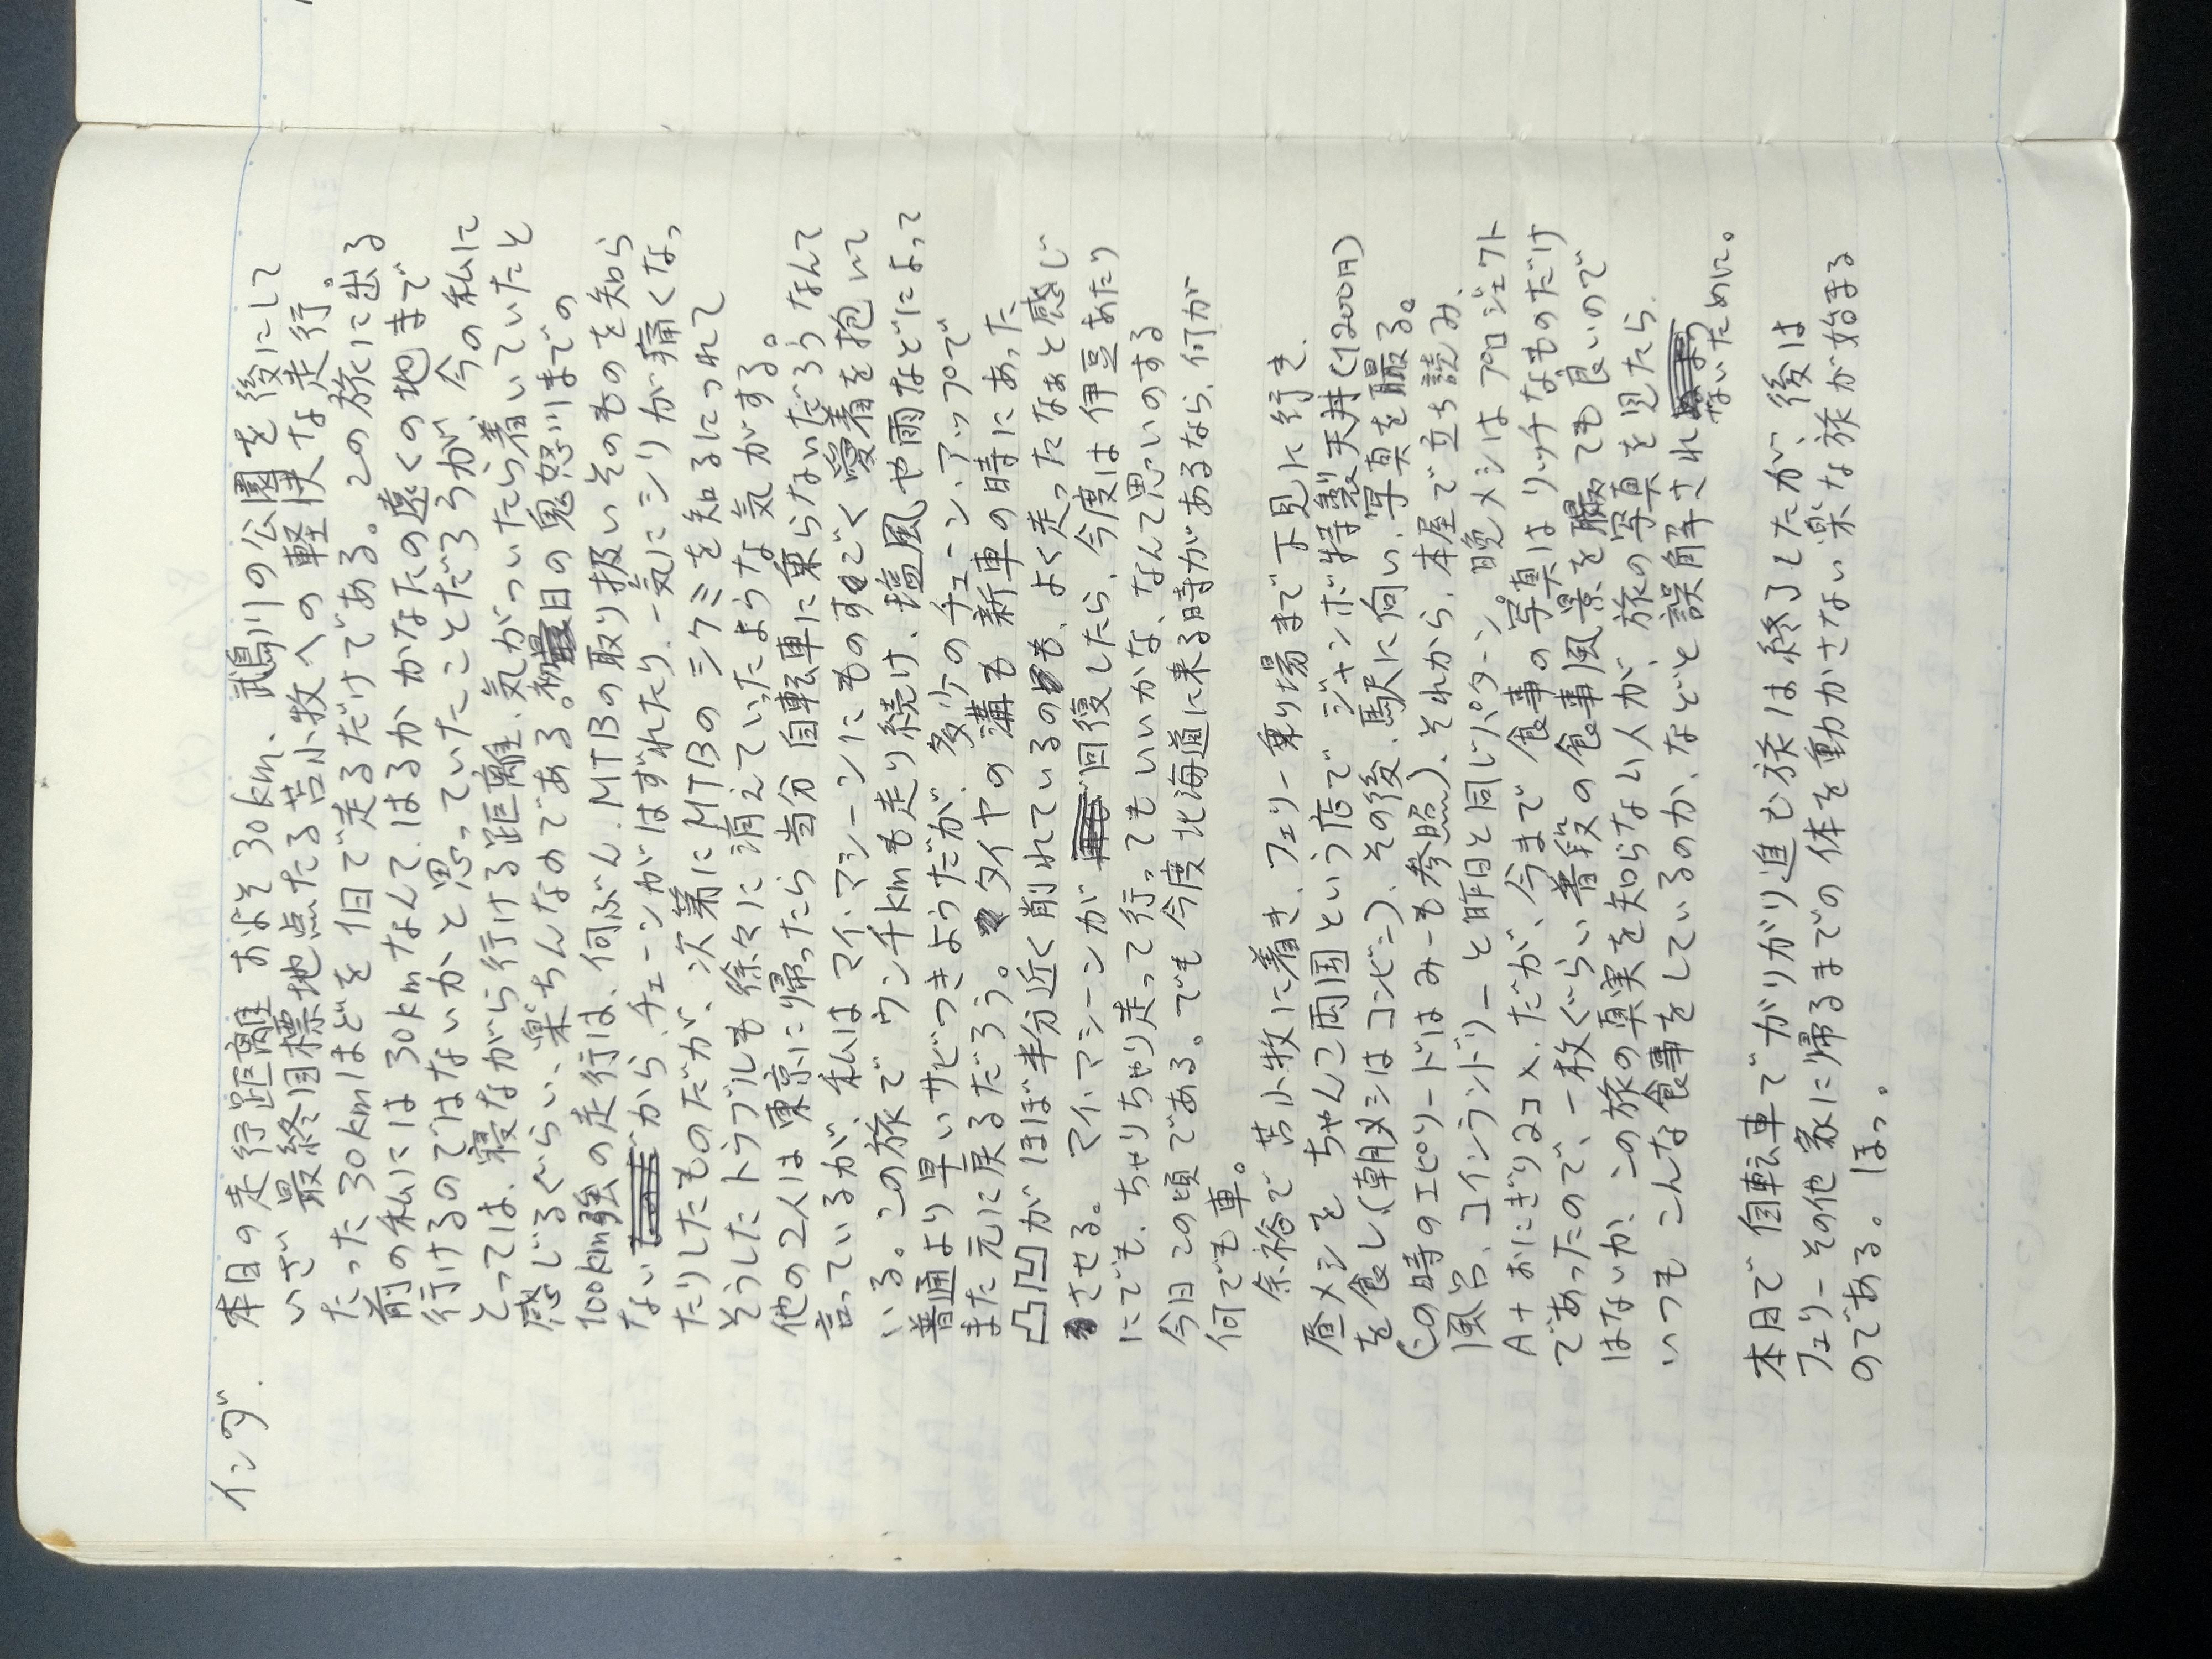 インダ.
本日の走行距離 およそ30km、鵡川の公園を後にして
いざ 最終目標地点たる苦小牧への軽快な走行。
たった30kmほどを1日で走るだけである。この旅に出る
前の私には30kmなんて、はるかかなたの遠くの地まで
行けるのではないかと思っていたことだろうが、今の私に
とっては、寝ながら行ける距離、気がついたら着いていたと
感じるぐらい、楽ちんなのである。初日の鬼怒川までの
100km強の走行は、何ぶん、MTBの取り扱いそのものを知ら
ないから、チェーンがはずれたり、一気にシリが痛くなっ
たりしたものだが、次第にMTBのシクミを知るにつれて
そうしたトラブルも徐々に消えていったような気がする。
他の2人は東京に帰ったら当分 自転車に乗らないだろうなんて
言っているが、私はマイ・マシーンにものすごく愛着を抱いて
いる。この旅でウン千kmも走り続け、塩風や雨などによって
普通より早いサビつきようだが、多少のチューン・アップで
また元に戻るだろう。タイヤの溝も新車の時にあった
凸凹がほぼ半分近く削れているのも、よく走ったなぁと感じ
させる。マイ・マシーンが回復したら、今度は伊豆あたり
にでも、ちゃりちゃり走って行ってもいいかな、なんて思いのする
今日この頃である。でも今度北海道に来る時があるなら、何が
何でも車。
余裕で 苫小牧に着き、フェリー乗り場まで下見に行き、
昼メシを ちゃんこ両国という店で ジャンボ特製天丼(1200円)
を食し、(朝メシはコンビニ)、その後、駅に向い、写真を撮る。
(この時のエピソードはみーも参照)、それから、本屋で立ち読み、
風呂、コインランドリーと昨日と同じパターン。晩メシはプロジェクト
A+おにぎり2コ×、だが、今まで 食事の写真はリッチなものだけ
であったので、一枚ぐらい普段の食事風景を撮っても良いので
はないか、この旅の真実を知らない人が、旅の写真を見たら、
いつも こんな食事をしているのか、などと誤解され
ないために。
本日で 自転車でガリガリ進む旅は終了したが、後は
フェリーその他 家に帰るまでの体を動かさない楽な旅が始まる
のである。ほっ。